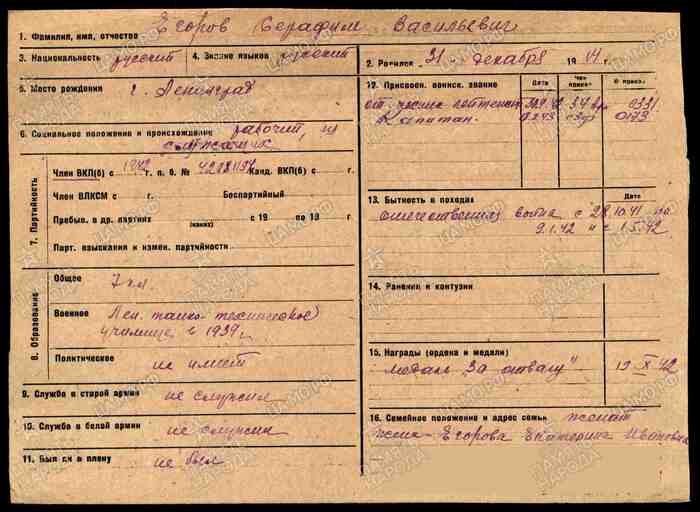 1. Фамилия, имя, отчество Егоров Серафим Васильевич
3. Национальность русский 4. Знание языков русский
5. Место рождения г. Ленинград
6. Социальное положение и происхождение рабочий, из
служащих
7. Партийность
Член ВКП(б) с 1942 г. п. б. № Канд. ВКП(б) с г.
Член ВЛКСМ с г. Беспартийный
Пребыв. в др. партиях (каких) с 19 по 19 г.
Парт. взыскания и измен. партийности
8. Образование
Общее 7 кл.
Военное Лен. танко-техническое
училище в 1939г.
Политическое не имеет
9. Служба в старой армии не служил
10. Служба в белой армии не служил
11. Был ли в плену не был
2. Родился 31 декабря 19 г.
12. Присвоен. воинск. звание Дата Чей приказ № приказ.
ст. техник лейтенант 0331
Капитан 0243 0193
13. Бытность в походах Дата
отечественная война с 28.10.41 по
9.1.42 " с 1.5.42
14. Ранения и контузии
15. Награды (ордена и медали)
медаль "За отвагу" 19 X 42
16. Семейное положение и адрес семьи женат
жена - Егорова Екатерина Ивановна
ПАМЯТЬ НАРОДА
ЦАМО.РФ